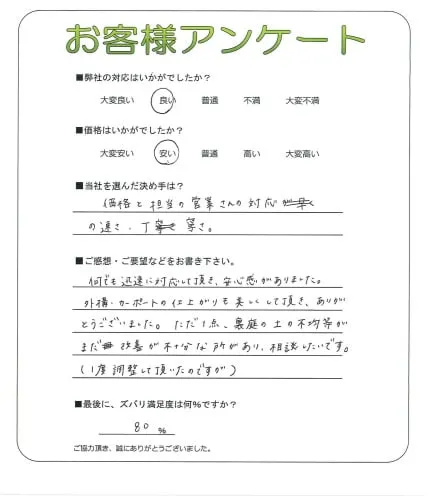 お客様アンケート
■弊社の対応はいかがでしたか？
大変良い 良い 普通 不満 大変不満
■価格はいかがでしたか？
大変安い 安い 普通 高い 大変高い
■当社を選んだ決め手は？
価格と担当の営業さんの対応
の速さ、丁寧さ。
■ご感想・ご要望などをお書き下さい。
何でも迅速に対応して頂き、安心感がありました。
外構・カーポートの仕上がりも美しくして頂き、ありが
とうございました。ただ1点、裏庭の土の不均等が
まだ改善が不十分な所があり、相談したいです。
(1度調整して頂いたのですが)
■最後に、ズバリ満足度は何%ですか？
80 %
ご協力頂き、誠にありがとうございました。